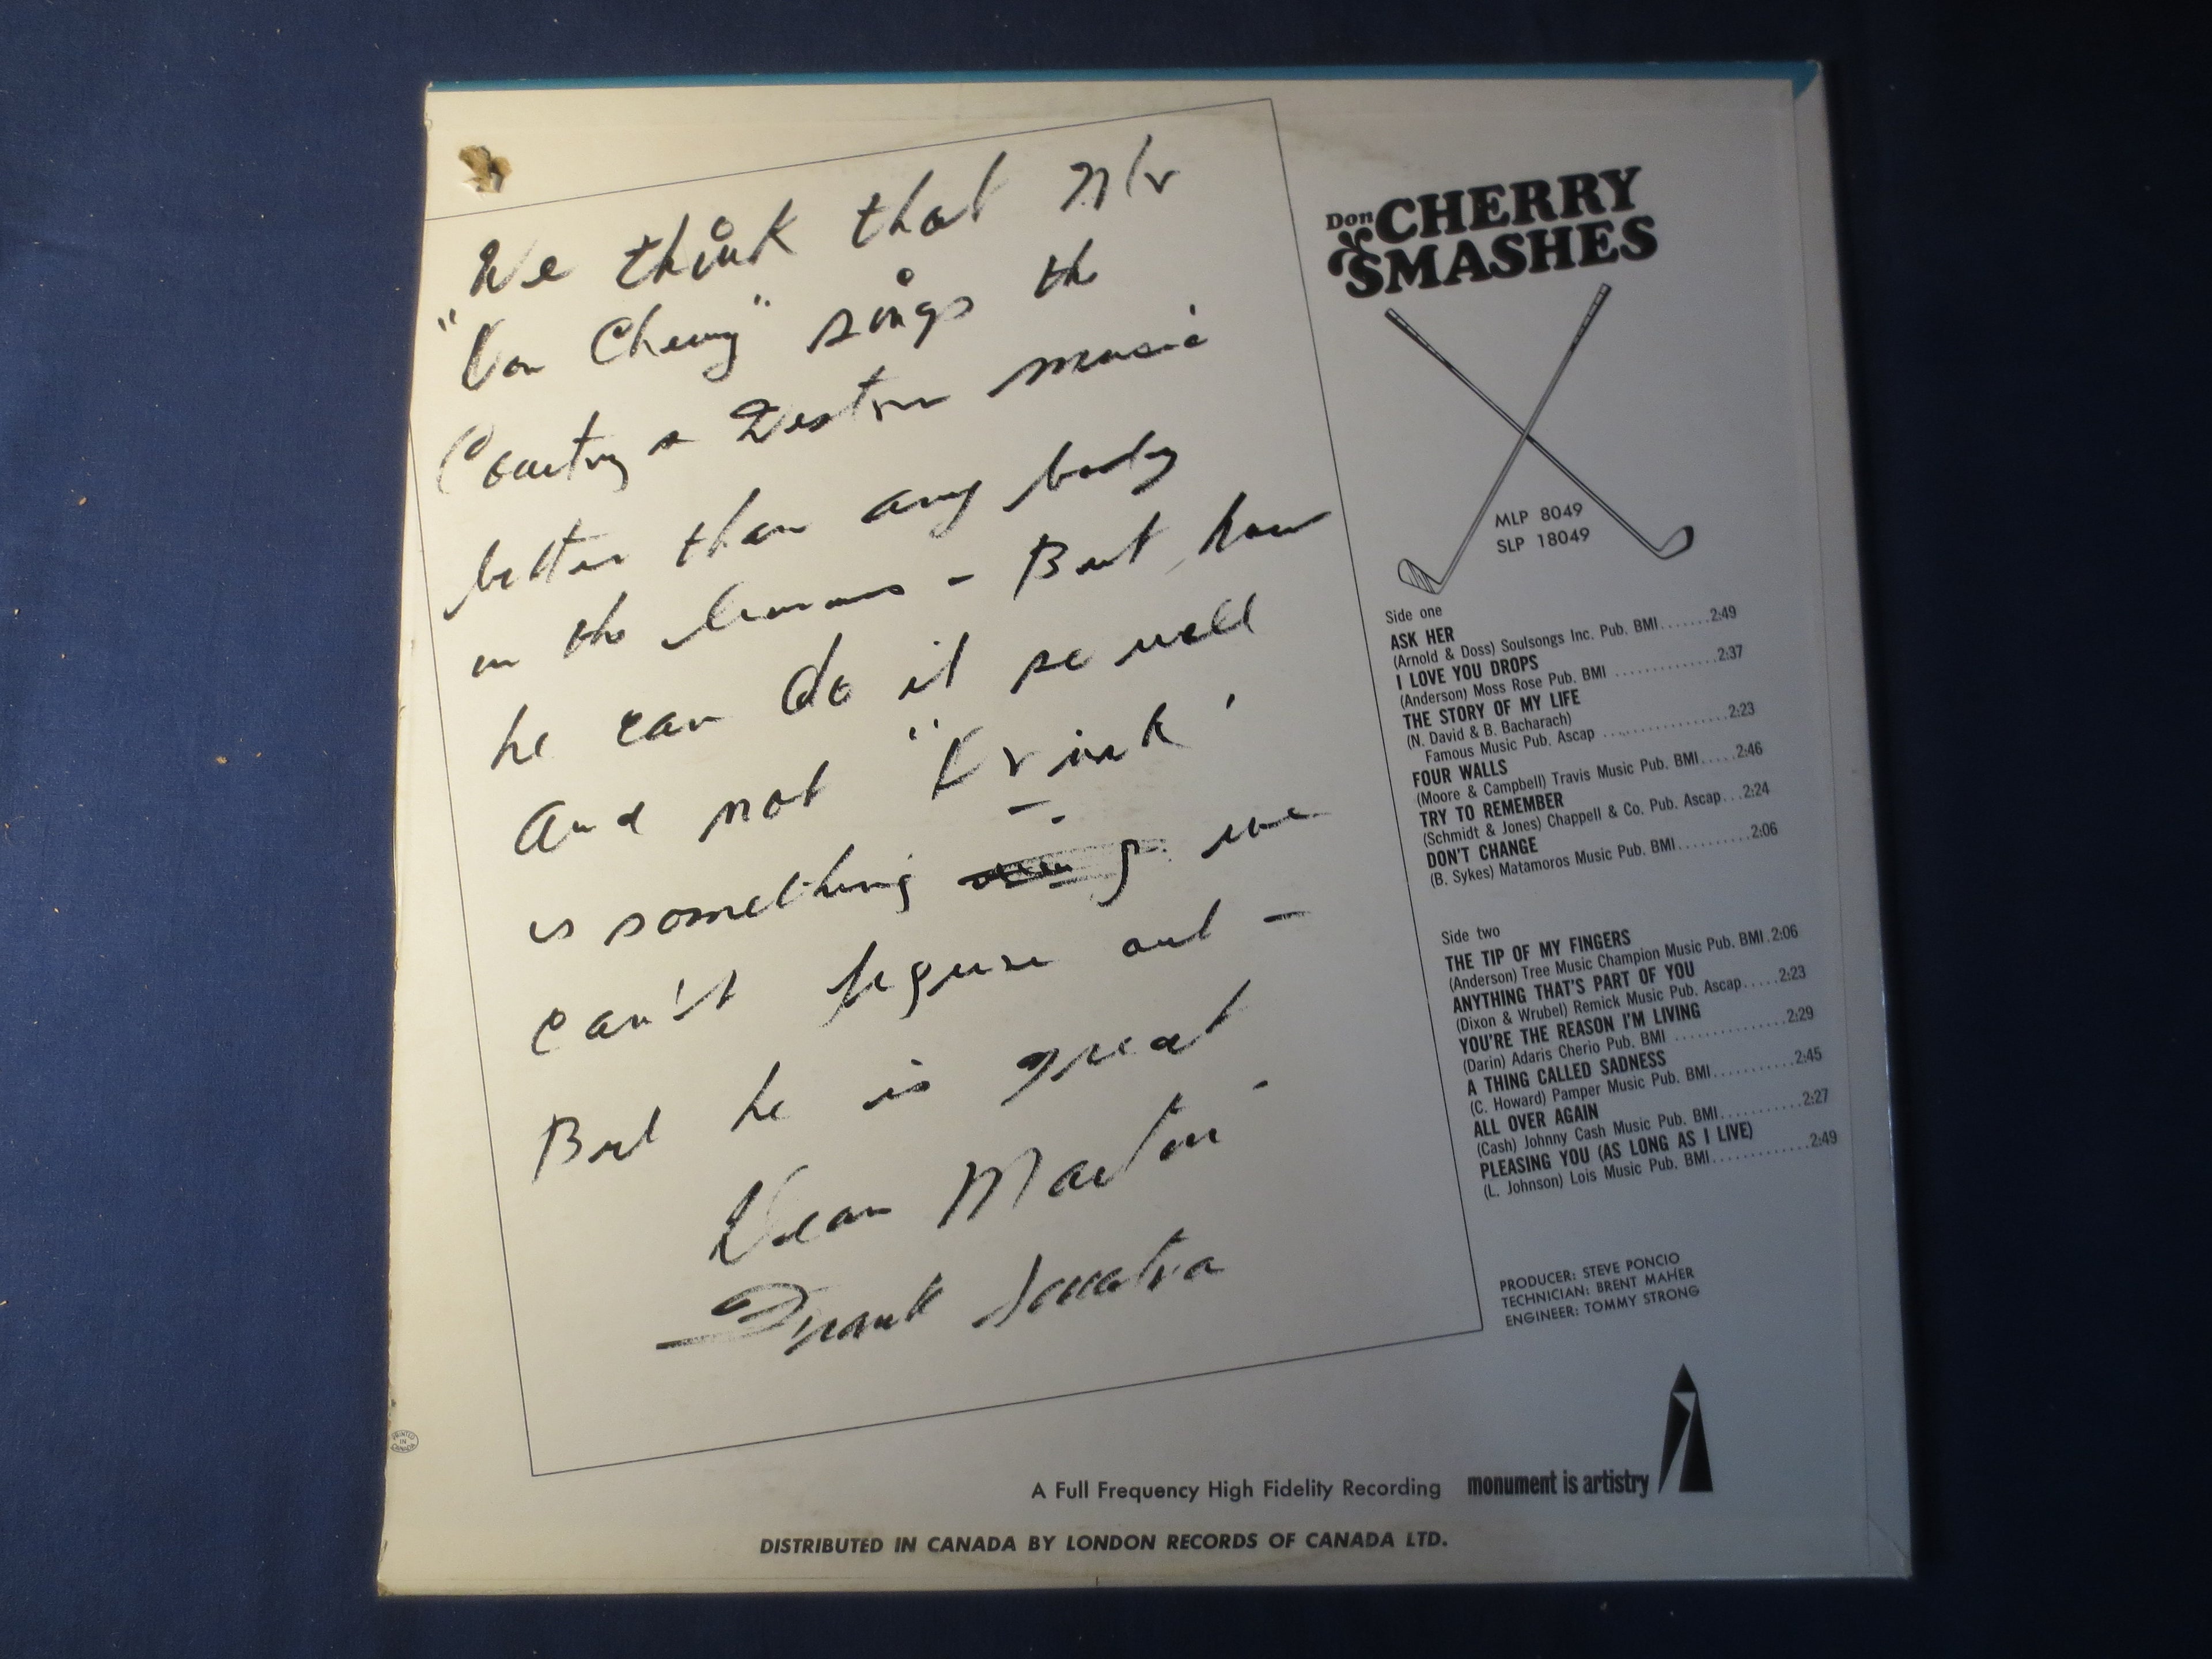 We think that Mr
"Don Cherry" sings the
Country & Western music
better than any body
in the business - But how
he can do it so well
And not "Drink"
is something we
can't figure out -
But he is great
Dean Martin
Frank Sinatra
Don CHERRY
SMASHES
MLP 8049
SLP 18049
Side one
ASK HER
(Arnold & Doss) Soulsongs Inc. Pub. BMI.......2:49
I LOVE YOU DROPS
(Anderson) Moss Rose Pub. BMI ..............2:37
THE STORY OF MY LIFE
(N. David & B. Bacharach)
Famous Music Pub. Ascap .................2:23
FOUR WALLS
(Moore & Campbell) Travis Music Pub. BMI.....2:46
TRY TO REMEMBER
(Schmidt & Jones) Chappell & Co. Pub. Ascap...2:24
DON'T CHANGE
(B. Sykes) Matamoros Music Pub. BMI..........2:06
Side two
THE TIP OF MY FINGERS
(Anderson) Tree Music Champion Music Pub. BMI.2:06
ANYTHING THAT'S PART OF YOU
(Dixon & Wrubel) Remick Music Pub. Ascap.....2:23
YOU'RE THE REASON I'M LIVING
(Darin) Adaris Cherio Pub. BMI ...............2:29
A THING CALLED SADNESS
(C. Howard) Pamper Music Pub. BMI...........2:45
ALL OVER AGAIN
(Cash) Johnny Cash Music Pub. BMI...........2:27
PLEASING YOU (AS LONG AS I LIVE)
(L. Johnson) Lois Music Pub. BMI.............2:49
PRODUCER: STEVE PONCIO
TECHNICIAN: BRENT MAHER
ENGINEER: TOMMY STRONG
PRINTED
IN
CANADA
A Full Frequency High Fidelity Recording monument is artistry
DISTRIBUTED IN CANADA BY LONDON RECORDS OF CANADA LTD.